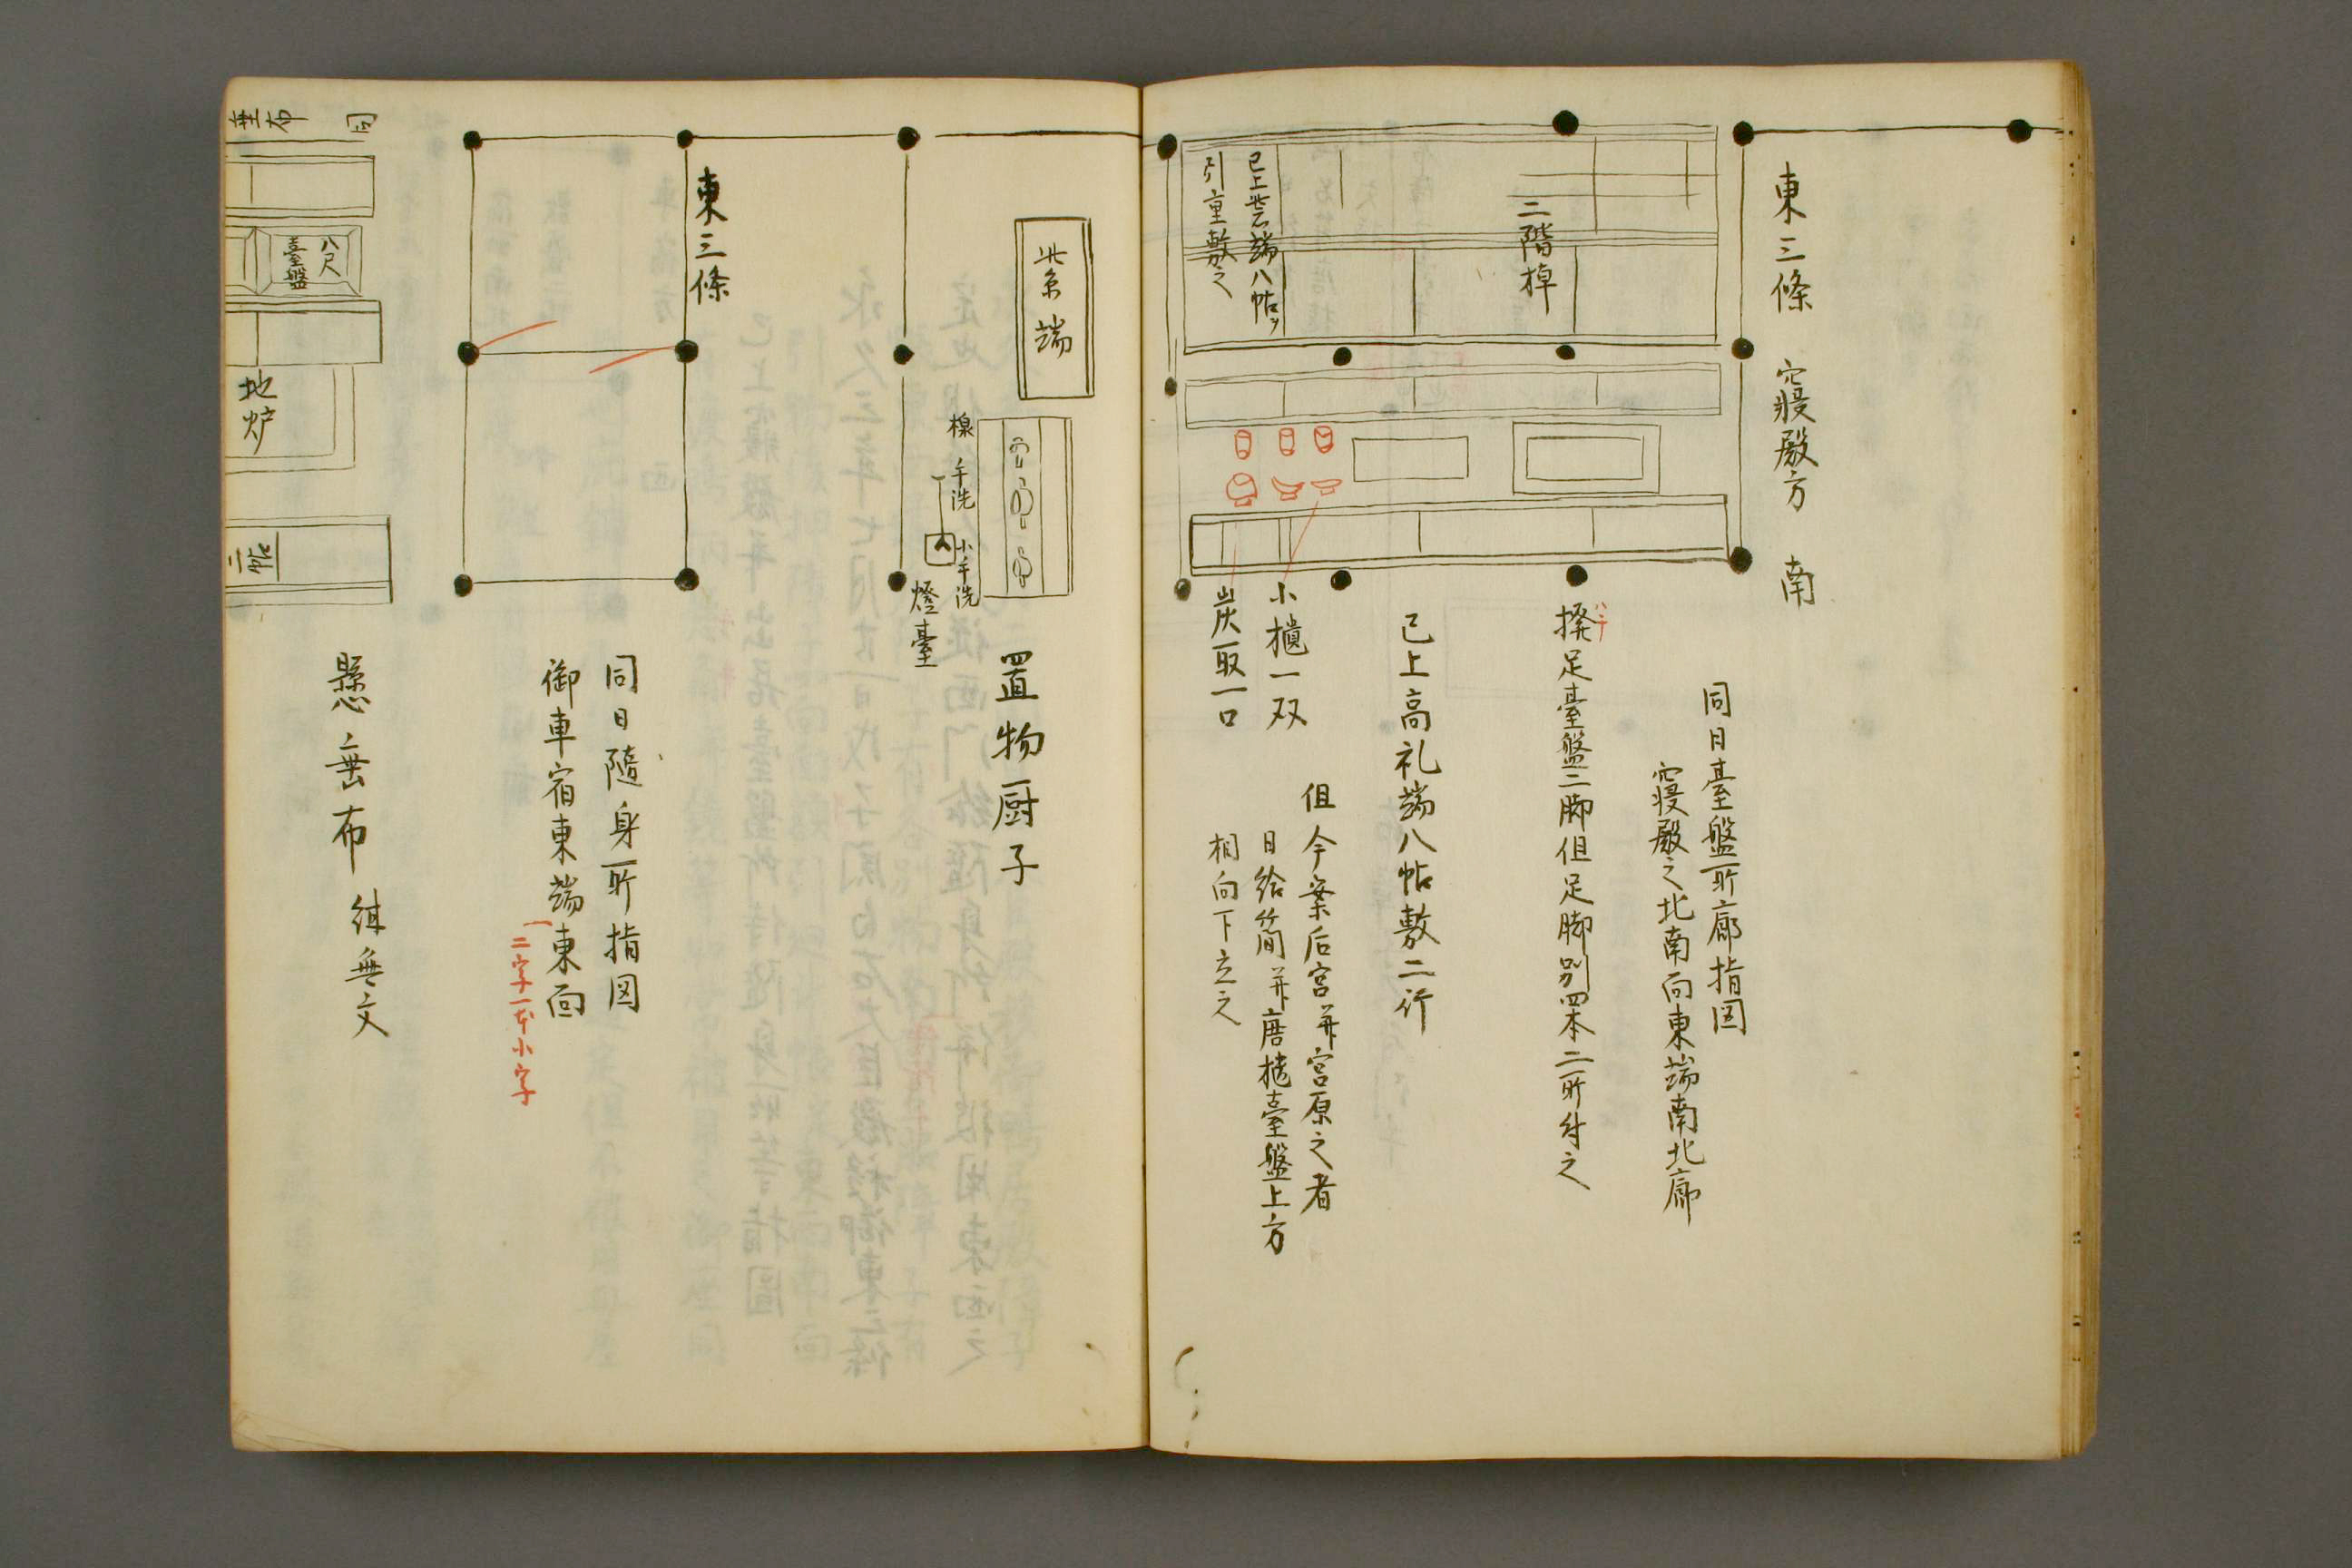 東三條　寝殿方　南
二階棹
已上紫端八帖
引重敷之
同日臺盤所廊指図
寝殿之北南面東端南北廊
撥足臺盤二脚但足脚別四本二所付之
ハ
已上高礼端八帖敷二行
小樻一双
炭取一口
但今案后宮并宮原之者
日給簡并唐樻臺盤上方
相向下立之
紫端
置物厨子
楾
手洗
小手洗
燈臺
東三條
同日隨身所指図
御車宿東端東面
二字一本小字
同
布
垂
八尺
臺盤
地炉
二帖
懸垂布
無文